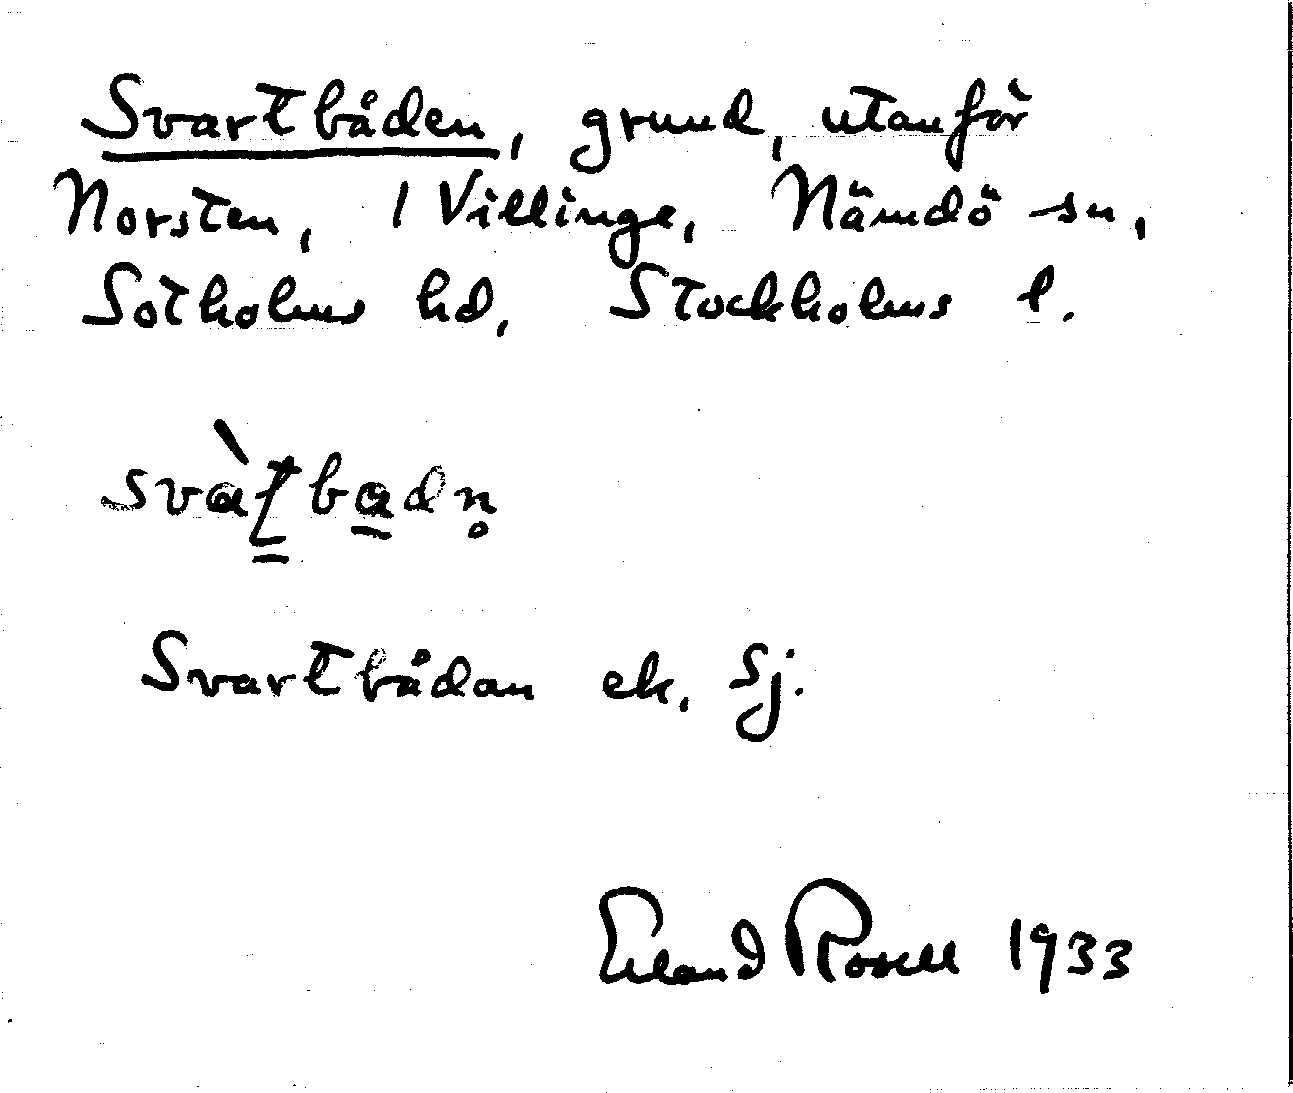 Svartbåden, grund, utanför
Norsten, 1 Villinge, Nämdö sn,
Sotholms hd, Stockholms l.
svàt̳ba̲dn̥
Svartbådan ek, Sj.
Erland Rosell 1933